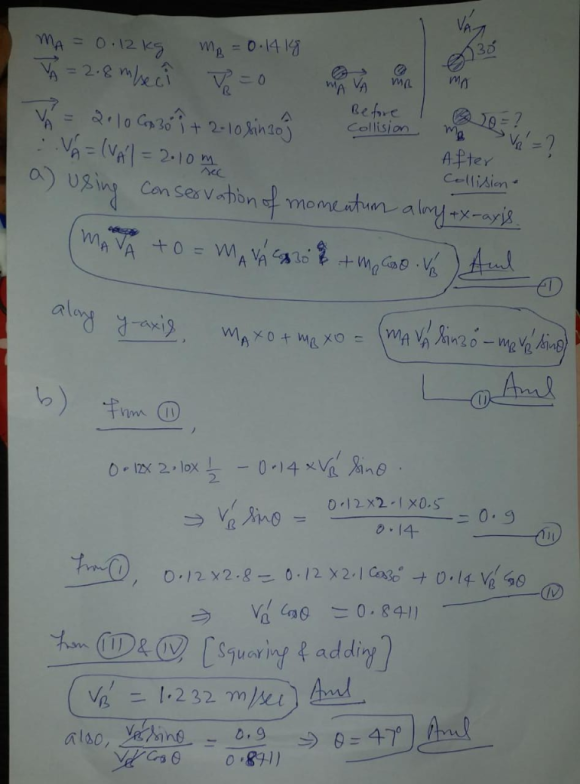 mA = 0.12 kg mB = 0.14 kg
VA = 2.8 m/sec î VB = 0
VA' = 2.10 Cos30° î + 2.10 Sin30 ĵ
∴ VA' = |VA'| = 2.10 m/sec
mA VA mB
Before
Collision
VA'
30°
mA
mB θ=?
VB' = ?
After
Collision.
a) Using Conservation of momentum along +x-axis
mA VA + 0 = mA VA' Cos30° + mB Cosθ · VB' Ans
I
along y-axis, mA×0 + mB×0 = mA VA' Sin30° – mB VB' Sinθ
II Ans
b) From II,
0.12× 2.10× 1/2 – 0.14 × VB' Sinθ.
⇒ VB' Sinθ = 0.12×2.1×0.5 / 0.14 = 0.9 III
From I, 0.12×2.8 = 0.12×2.1 Cos30° + 0.14 VB' Cosθ
IV
⇒ VB' Cosθ = 0.8411
From III & IV, [Squaring & adding]
VB' = 1.232 m/sec Ans
also, VB' Sinθ / VB' Cosθ = 0.9 / 0.8411 ⇒ θ = 47° Ans